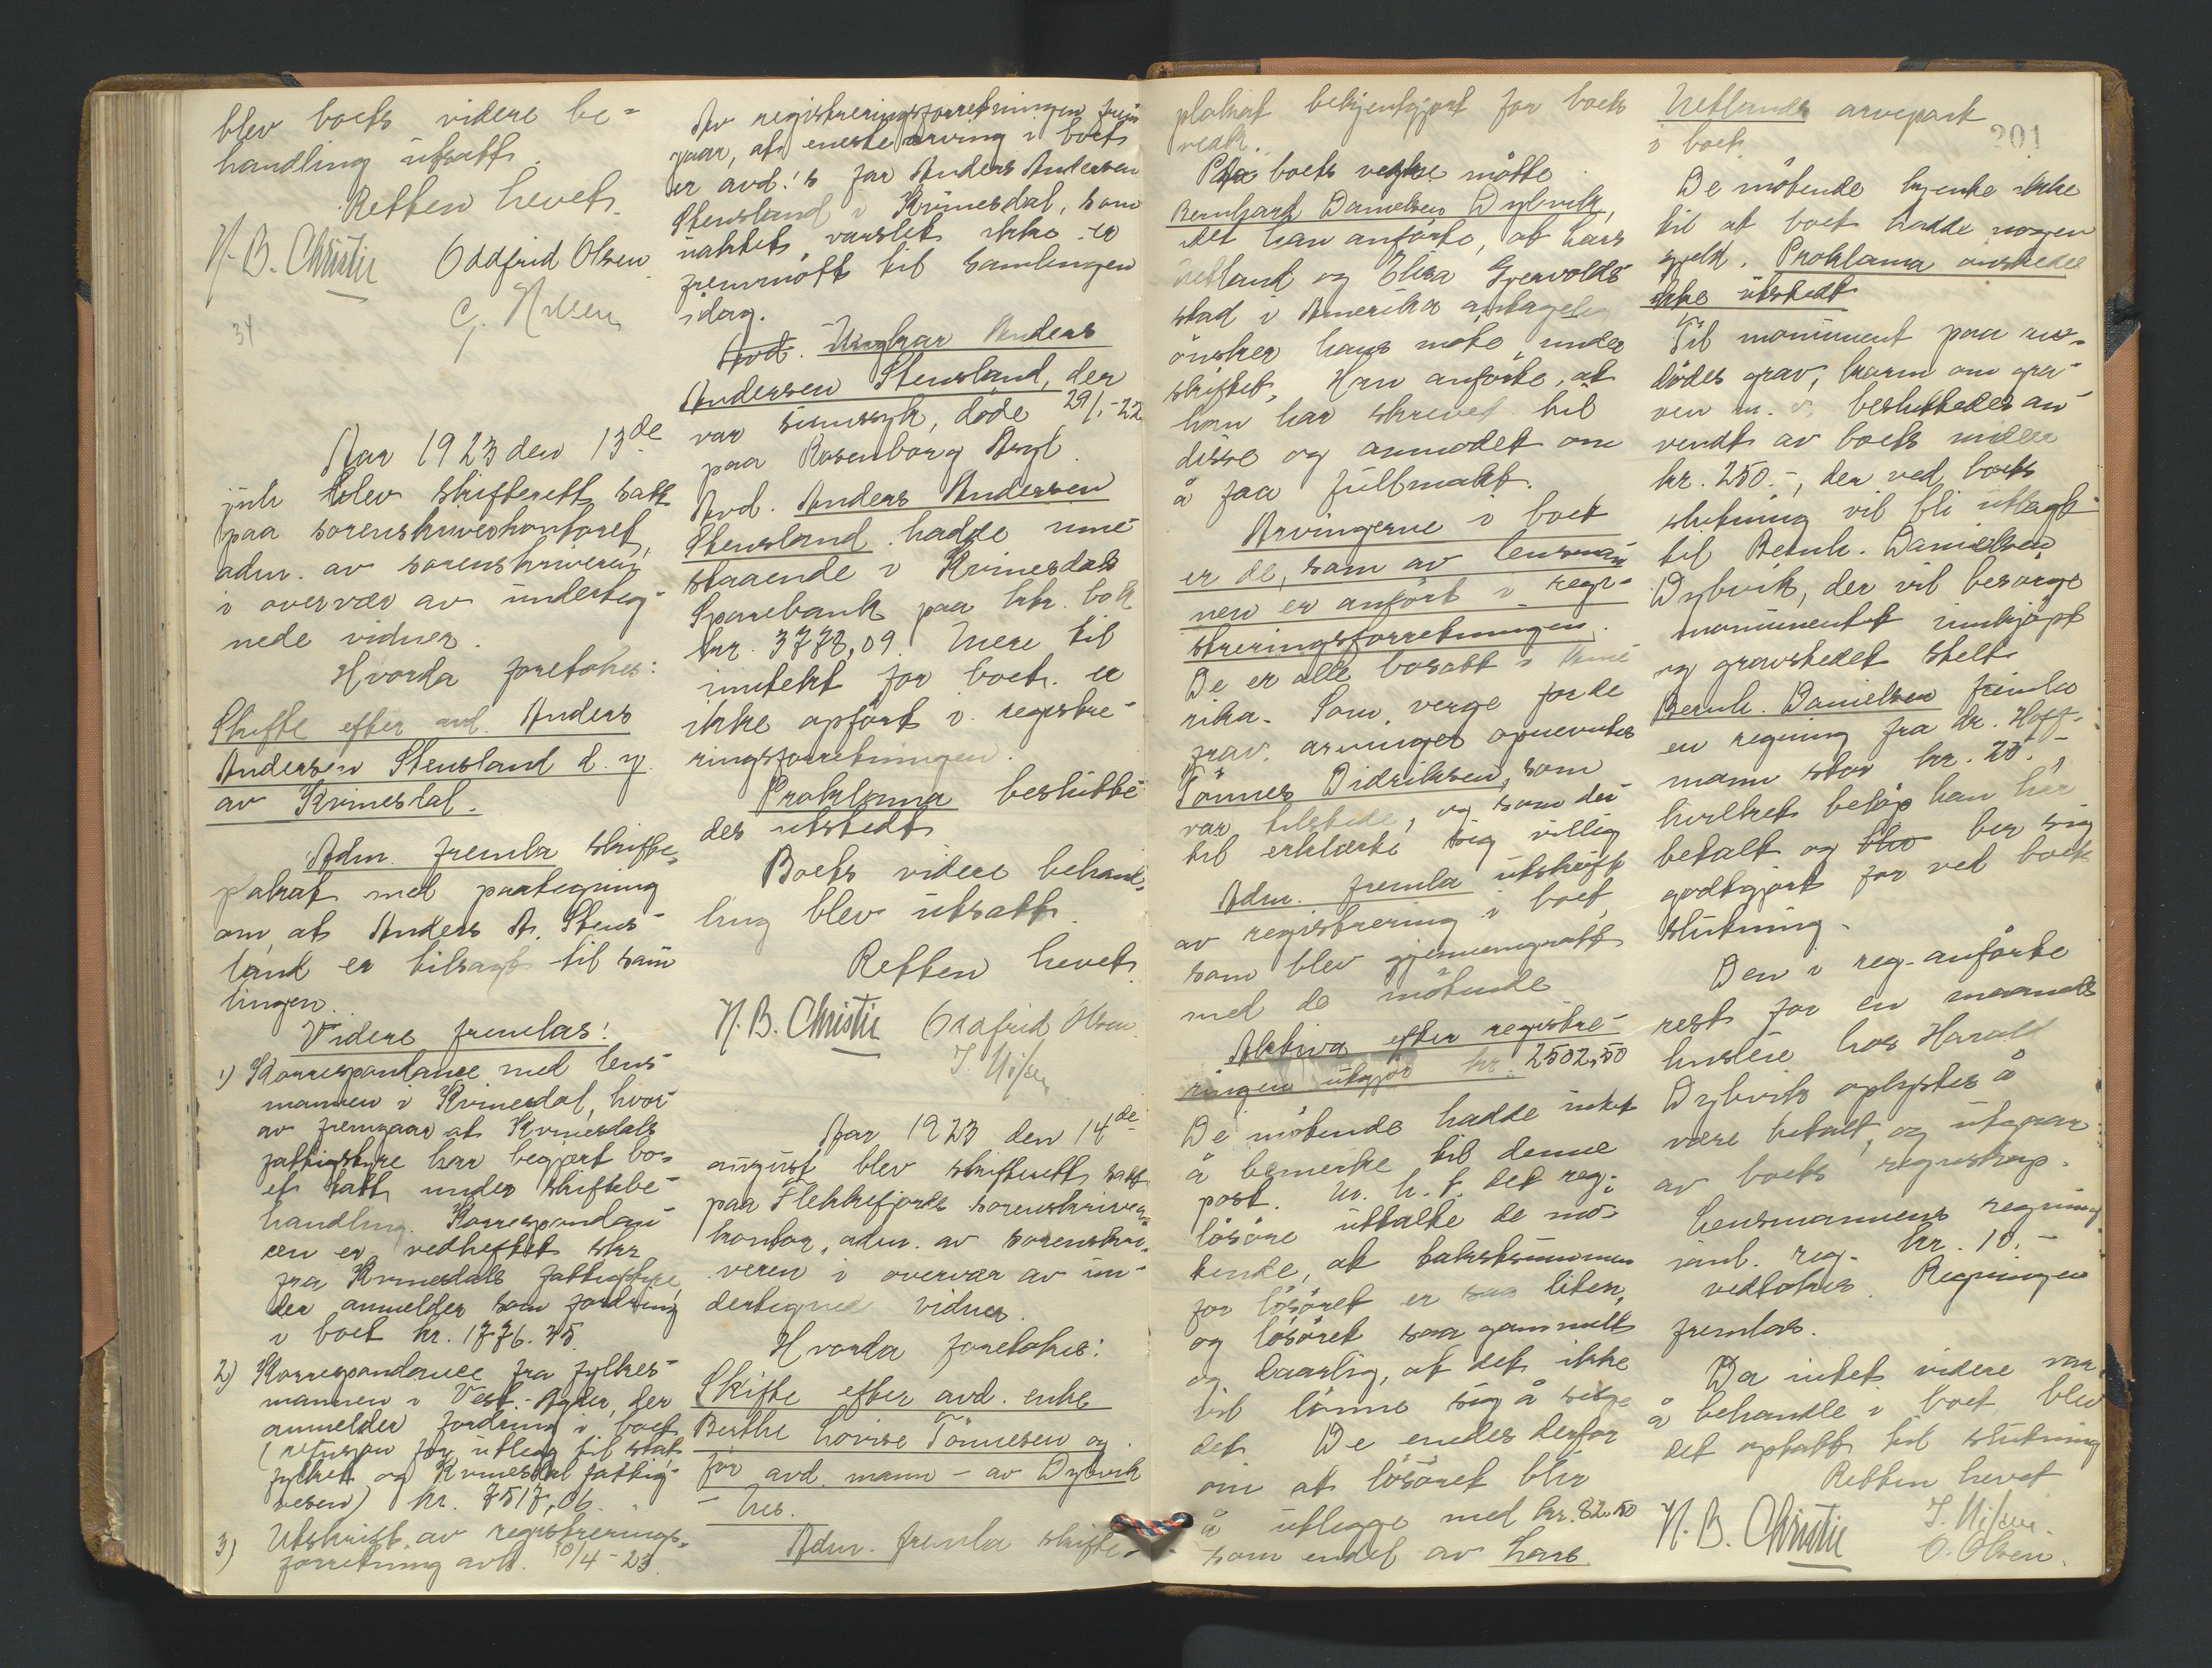 blev boets videre be-
handling utsatt.
Retten hevet.
N. B. Christie Oddfrid Olsen
34
Aar 1923 den 13de
juli blev skifterett satt
paa sorenskriverkontoret,
adm. av sorenskriveren
i overvær av underteg-
nede vidner.
Hvorda foretokes:
Skifte efter avd. Anders
Andersen Stensland d. y.
av Kvinesdal.
Adm. fremla skifte-
plakat med paategning
om at Anders A. Stens-
land er tilsagt til sam
lingen.
Videre fremlas:
1) Korrespondance med lens-
mannen i Kvinesdal, hvor-
av fremgaar at Kvinesdals
fattigstyre har begjært bo-
et tatt under skiftebe-
handling. Korrespondan-
cen er vedheftet skr
fra Kvinesdals fattigstyre,
der anmelder som fordring
i boet kr. 1776.75.
2) Korrespondance fra fylkes-
mannen i Vest-Agder, der
anmelder fordring i boet
(refusjon for utlegg til stat,
fylket og Kvinesdal fattig-
vesen) kr. 7517,06.
3) Utskrift av registrerings-
forretning avh. 10/4-23.
Av registreringsforretningen frem
gaar, at eneste arving i boet
er avd.'s far Anders Andersen
Stensland i Kvinesdal, som
uaktet varslet ikke er
fremmøtt til samlingen
idag.
Avd. Ungkar Anders
Andersen Stensland, der
var sinnssyk, døde 29/1-22
paa Rosenborg Asyl.
Avd. Anders Andersen
Stensland hadde inne-
staaende i Kvinesdals
Sparebank paa bok
kr. 3772,09. Mere til
inntekt for boet er
ikke opført i registre-
ringsforretningen.
Proklama beslutte-
des utstedt
Boets videre behand-
ling blev utsatt.
Retten hevet.
N. B. Christie Oddfrid Olsen
J. Nilsen
Aar 1923 den 14de
august blev skifterett satt
paa Flekkefjords sorenskriver-
kontor, adm. av sorenskri-
veren i overvær av un-
dertegnede vidner.
Hvorda foretokes:
Skifte efter avd. enke
Berthe Lovise Tönnesen og
før avd. mann - av Dybvik
- Hes.
Adm. fremla skifte-
plakat bekjentgjort for boets
vedk.
Paa boets vegne møtte
Bernhard Danielsen Dybvik,
idet han anførte, at Lars
Uetland og Elisa Gjervolds-
stad i Amerika antagelig
ønsker hans møte under
skiftet. Han anførte, at
han har skrevet til
disse og anmodet om
å faa fullmakt.
Arvingerne i boet
er de, som av lensman-
nen er anført i regi-
streringsforretningen.
De er alle bosatt i Ame
rika. Som verge for de
frav. arvinger opnevntes
Tönnes Didriksen, som
var tilstede, og som der-
til erklærte sig villig
Adm. fremla utskrift
av registrering i boet,
som blev gjennemgaatt
med de møtende
Aktiva efter registre-
ringen utgjør kr. 2502,50
De møtende hadde intet
å bemerke til denne
post. M. h. t. det reg.
løsøre uttalte de mø-
tende, at takstsummen
for løsøret er saa liten,
og løsøret saa gammelt
og daarlig, at det ikke
vil lønne sig å selge
det. De enedes derfor
om at løsøret blir
å utlegge med kr. 82.50
som endel av Lars
201
Uetlands arvepart
i boet.
De møtende kjente ikke
til at boet hadde nogen
gjeld. Proklama ønskedes
ikke utstedt
Til monument paa av-
dødes grav, karm om gra-
ven m. v. besluttedes an-
vendt av boets midler
kr. 250.-, der ved boets
slutning vil bli utlagt
til Bernh. Danielsen
Dybvik, der vil besørge
monumentet innkjøpt
og gravstedet stelt
Bernh. Danielsen fremla
en regning fra dr. Hoff-
mann stor kr. 20.-,
hvilket beløp han har
betalt og blev ber sig
godtgjort for ved boets
slutning.
Den i reg. anførte
rest for en maaneds
husleie hos Harald
Dybvik oplystes å
være betalt, og utgaar
av boets regnskap.
Lensmannens regning
inkl. reg. kr. 10.-
vedtokes. Regningen
fremlas.
Da intet videre var
å behandle i boet, blev
det optatt til slutning
Retten hevet
N. B. Christie J. Nilsen.
O. Olsen.